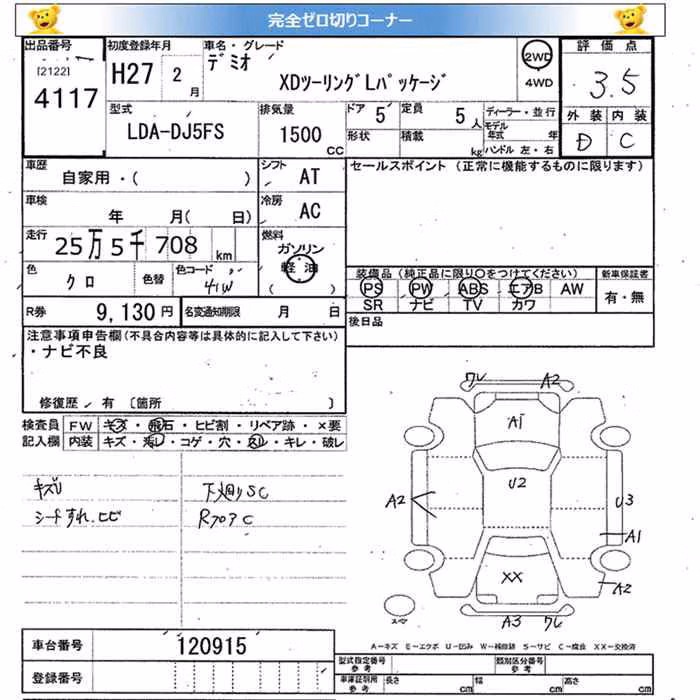 完全ゼロ切りコーナー
出品番号 初度登録年月 車名・グレード 評価点
[2122] 4117 H27 2月 デミオ XDツーリングLパッケージ 2WD 4WD 3.5
型式 排気量 ドア 定員 ディーラー・並行 外装 内装
LDA-DJ5FS 1500 CC 5 5人 モデル年式 年 D C
形状 積載 kg ハンドル 左・右
車歴 シフト セールスポイント (正常に機能するものに限ります)
自家用・( ) AT
車検 冷房
年 月( 日) AC
走行 燃料
25万5千708 km ガソリン
軽油
( )
色 色替 色コード 装備品 (純正品に限り○をつけてください) 新車保証書
クロ 41W PS PW ABS エアB AW 有・無
SR ナビ TV カワ
R券 9,130円 名変通知期限 月 日 後日品
注意事項申告欄(不具合内容等は具体的に記入して下さい)
・ナビ不良
修復歴 有 〔箇所 〕
検査員 FW キズ・飛石・ヒビ割・リペア跡・×要
記入欄 内装 キズ・汚レ・コゲ・穴・スレ・キレ・破レ
キズU 下廻りSC
シートすれ.ヒビ RフロアC
ワレ A2
A1
U2
A2 U3
A1
XX A2
A3 ワレ
スペア
A-キズ E-エクボ U-凹み W-補修跡 S-サビ C-腐食 XX-交換済
車台番号 120915
型式指定番号 参考 類別区分番号 参考
登録番号
車庫証明用 参考 長さ cm 幅 cm 高さ cm